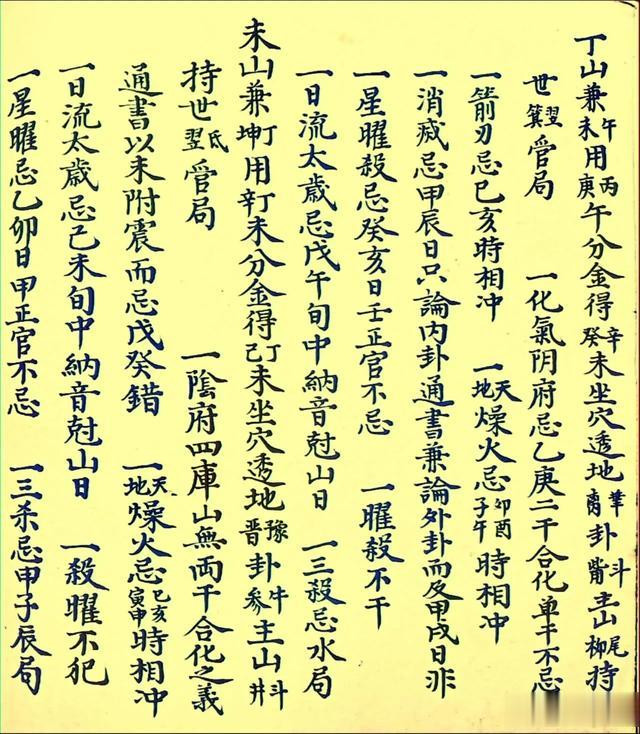 丁山兼午未用丙庚午分金得辛癸未坐穴透地華离卦斗觜主山尾柳持
世翌箕管局 一化氣阴府忌乙庚二干合化單干不忌
一箭刃忌巳亥時相冲 一天地燥火忌卯酉子午時相冲
一消烕忌甲辰日只論内卦通書兼論外卦而及甲戌日非
一星曜殺忌癸亥日壬正官不忌 一曜殺不干
一日流太歲忌戊午旬中納音尅山日 一三殺忌水局
未山兼坤丁用辛丁未分金得己丁未坐穴透地豫晋卦牛參主山斗井
持世翌氐管局 一陰府四庫山無両干合化之義
通書以未附震而忌戊癸錯 一天地燥火忌巳亥寅申時相冲
一日流太歲忌己未旬中納音尅山日 一殺曜不犯
一星曜忌乙卯日甲正官不忌 一三杀忌申子辰局